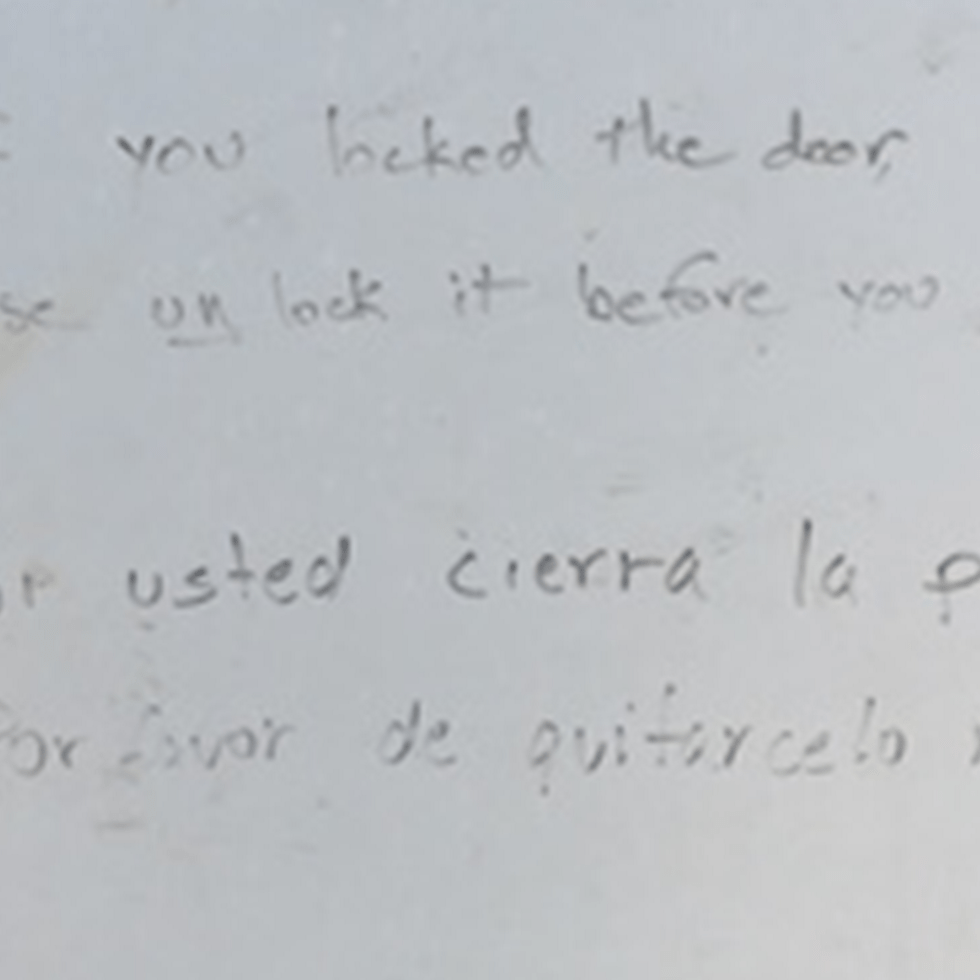 you locked the door,
un lock it before you
usted cierra la
Por favor de quitarcelo